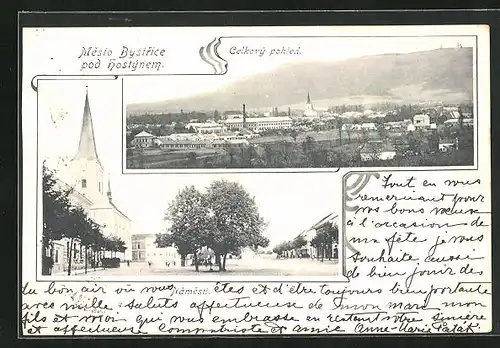 Město Bystřice
pod Hostýnem.
Celkový pohled.
Náměstí.
Tout en vous
remerciant pour
vos bons vœux
à l'occasion de
ma fête je vous
souhaite aussi
de bien jouir des
du bon air où vous êtes et d'être toujours bien portante
avec mille saluts affectueuse de mon mari, mon
fils et moi qui vous embrasse en restant votre sincère
et affectueuse compatriote et amie Anne-Marie